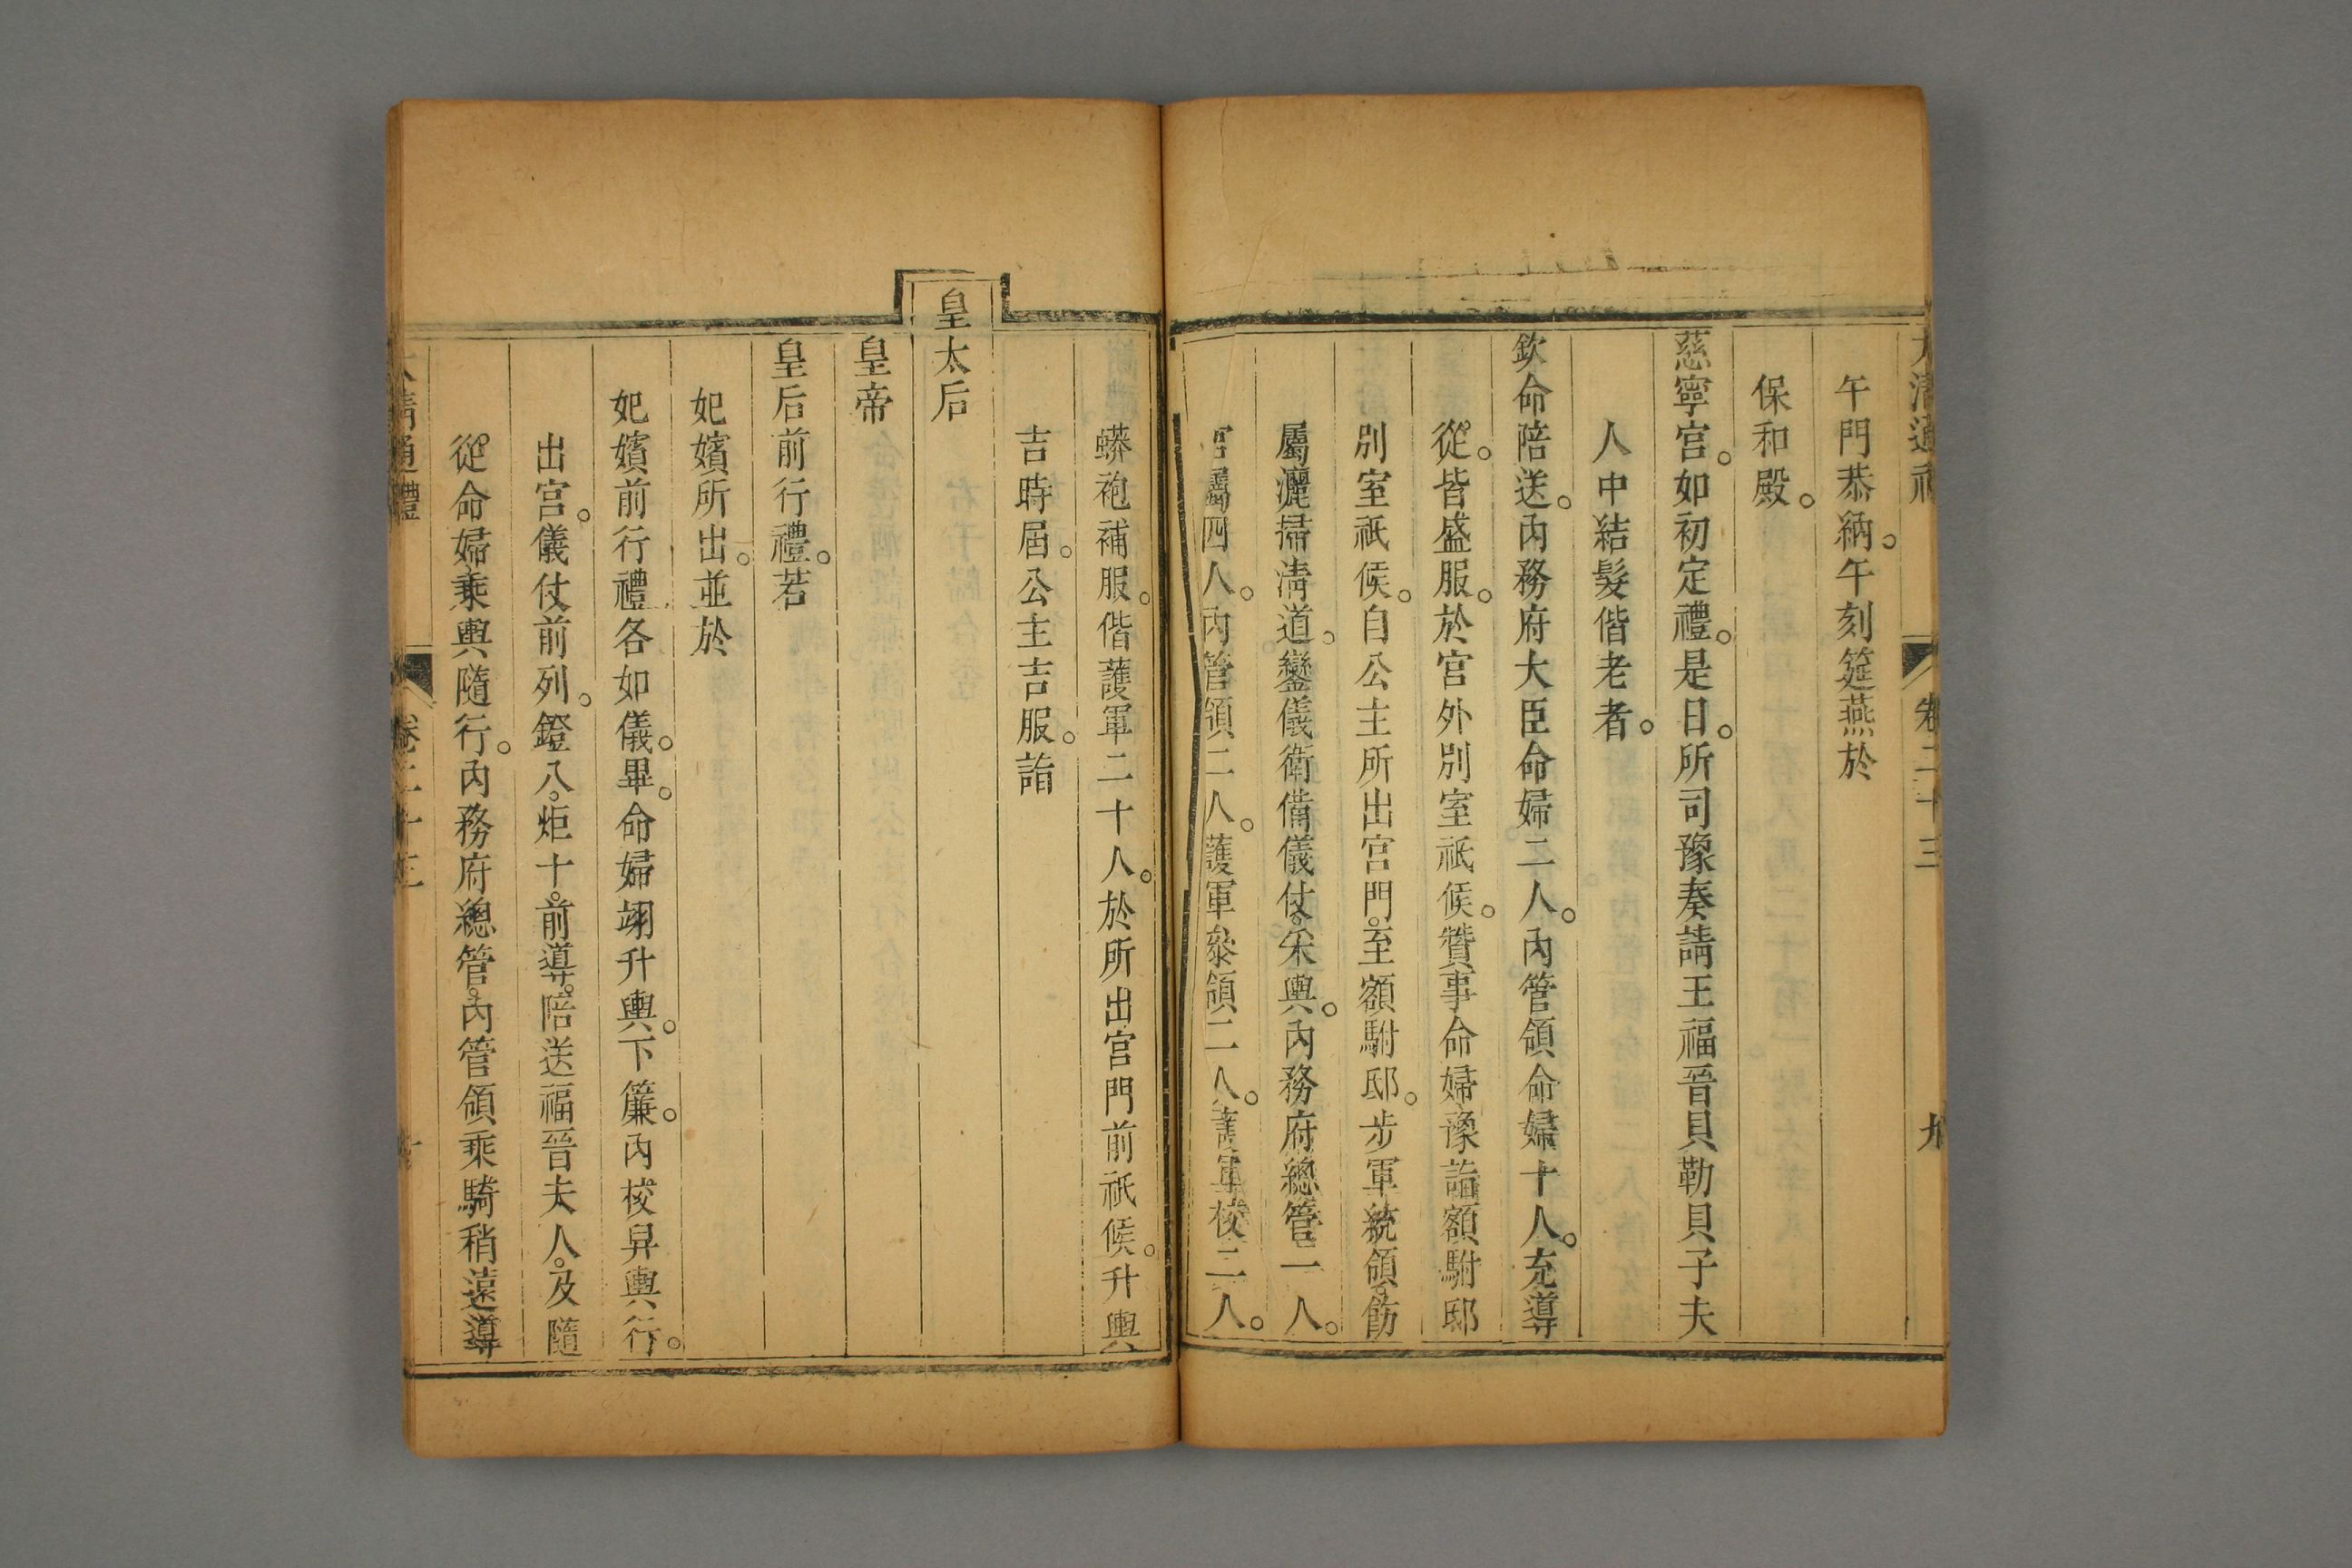 大清通禮 卷二十三 九
午門恭納。午刻筵燕於
保和殿。
慈寧宮。如初定禮。是日。所司豫奏請王福晉貝勒貝子夫
人中結髮偕老者。
欽命陪送。內務府大臣命婦二人。內管領命婦十人。充導
從。皆盛服。於宮外別室祇候。贊事命婦豫詣額駙邸
別室祇候。自公主所出宮門。至額駙邸。步軍統領飭
屬灑掃清道。鑾儀衛備儀仗。采輿。內務府總管一人。
官屬四人。內管領二人。護軍叅領二人。護軍校二人。
蟒袍補服。偕護軍二十人。於所出宮門前祇候。升輿
吉時屆。公主吉服。詣
皇太后
皇帝
皇后前行禮。若
妃嬪所出。並於
妃嬪前行禮各如儀。畢。命婦翊升輿。下簾。內校舁輿行。
出宮。儀仗前列。鐙八。炬十。前導。陪送福晉夫人。及隨
從命婦乘輿隨行。內務府總管。內管領乘騎稍遠導
大清通禮 卷二十三 十